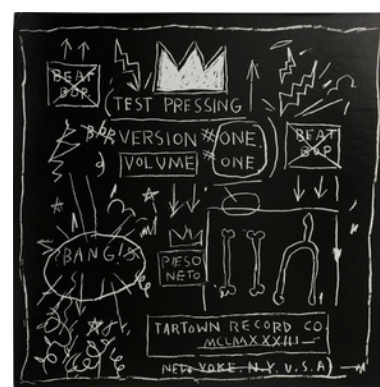 BEAT
BOP
(TEST PRESSING
VERSION # ONE.
VOLUME # ONE
BEAT
BOP
BANG!
PIESO
NETO
TARTOWN RECORD CO.
MCLMXXXIII
NEW YORK. N.Y. U.S.A)